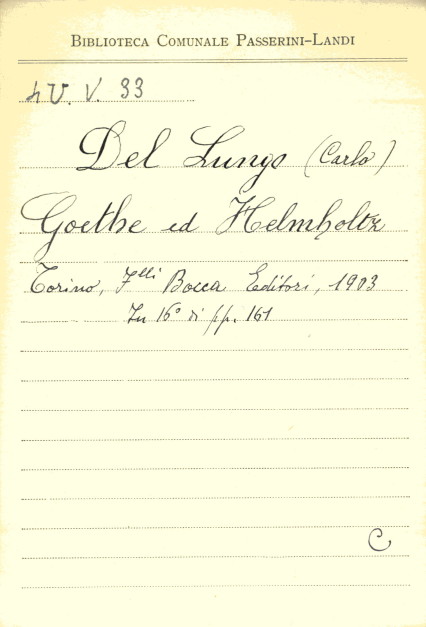 BIBLIOTECA COMUNALE PASSERINI-LANDI
4 V. V. 33
Del Lungo (Carlo)
Goethe ed Helmholtz
Torino, Flli Bocca Editori, 1903
In 16° di pp. 161
C